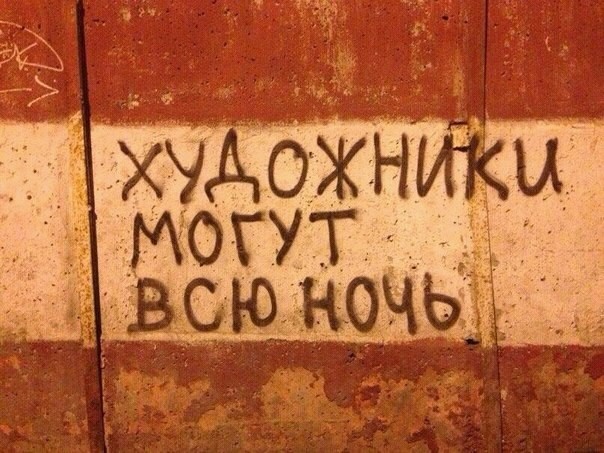 ХУДОЖНИКИ
МОГУТ
ВСЮ НОЧЬ